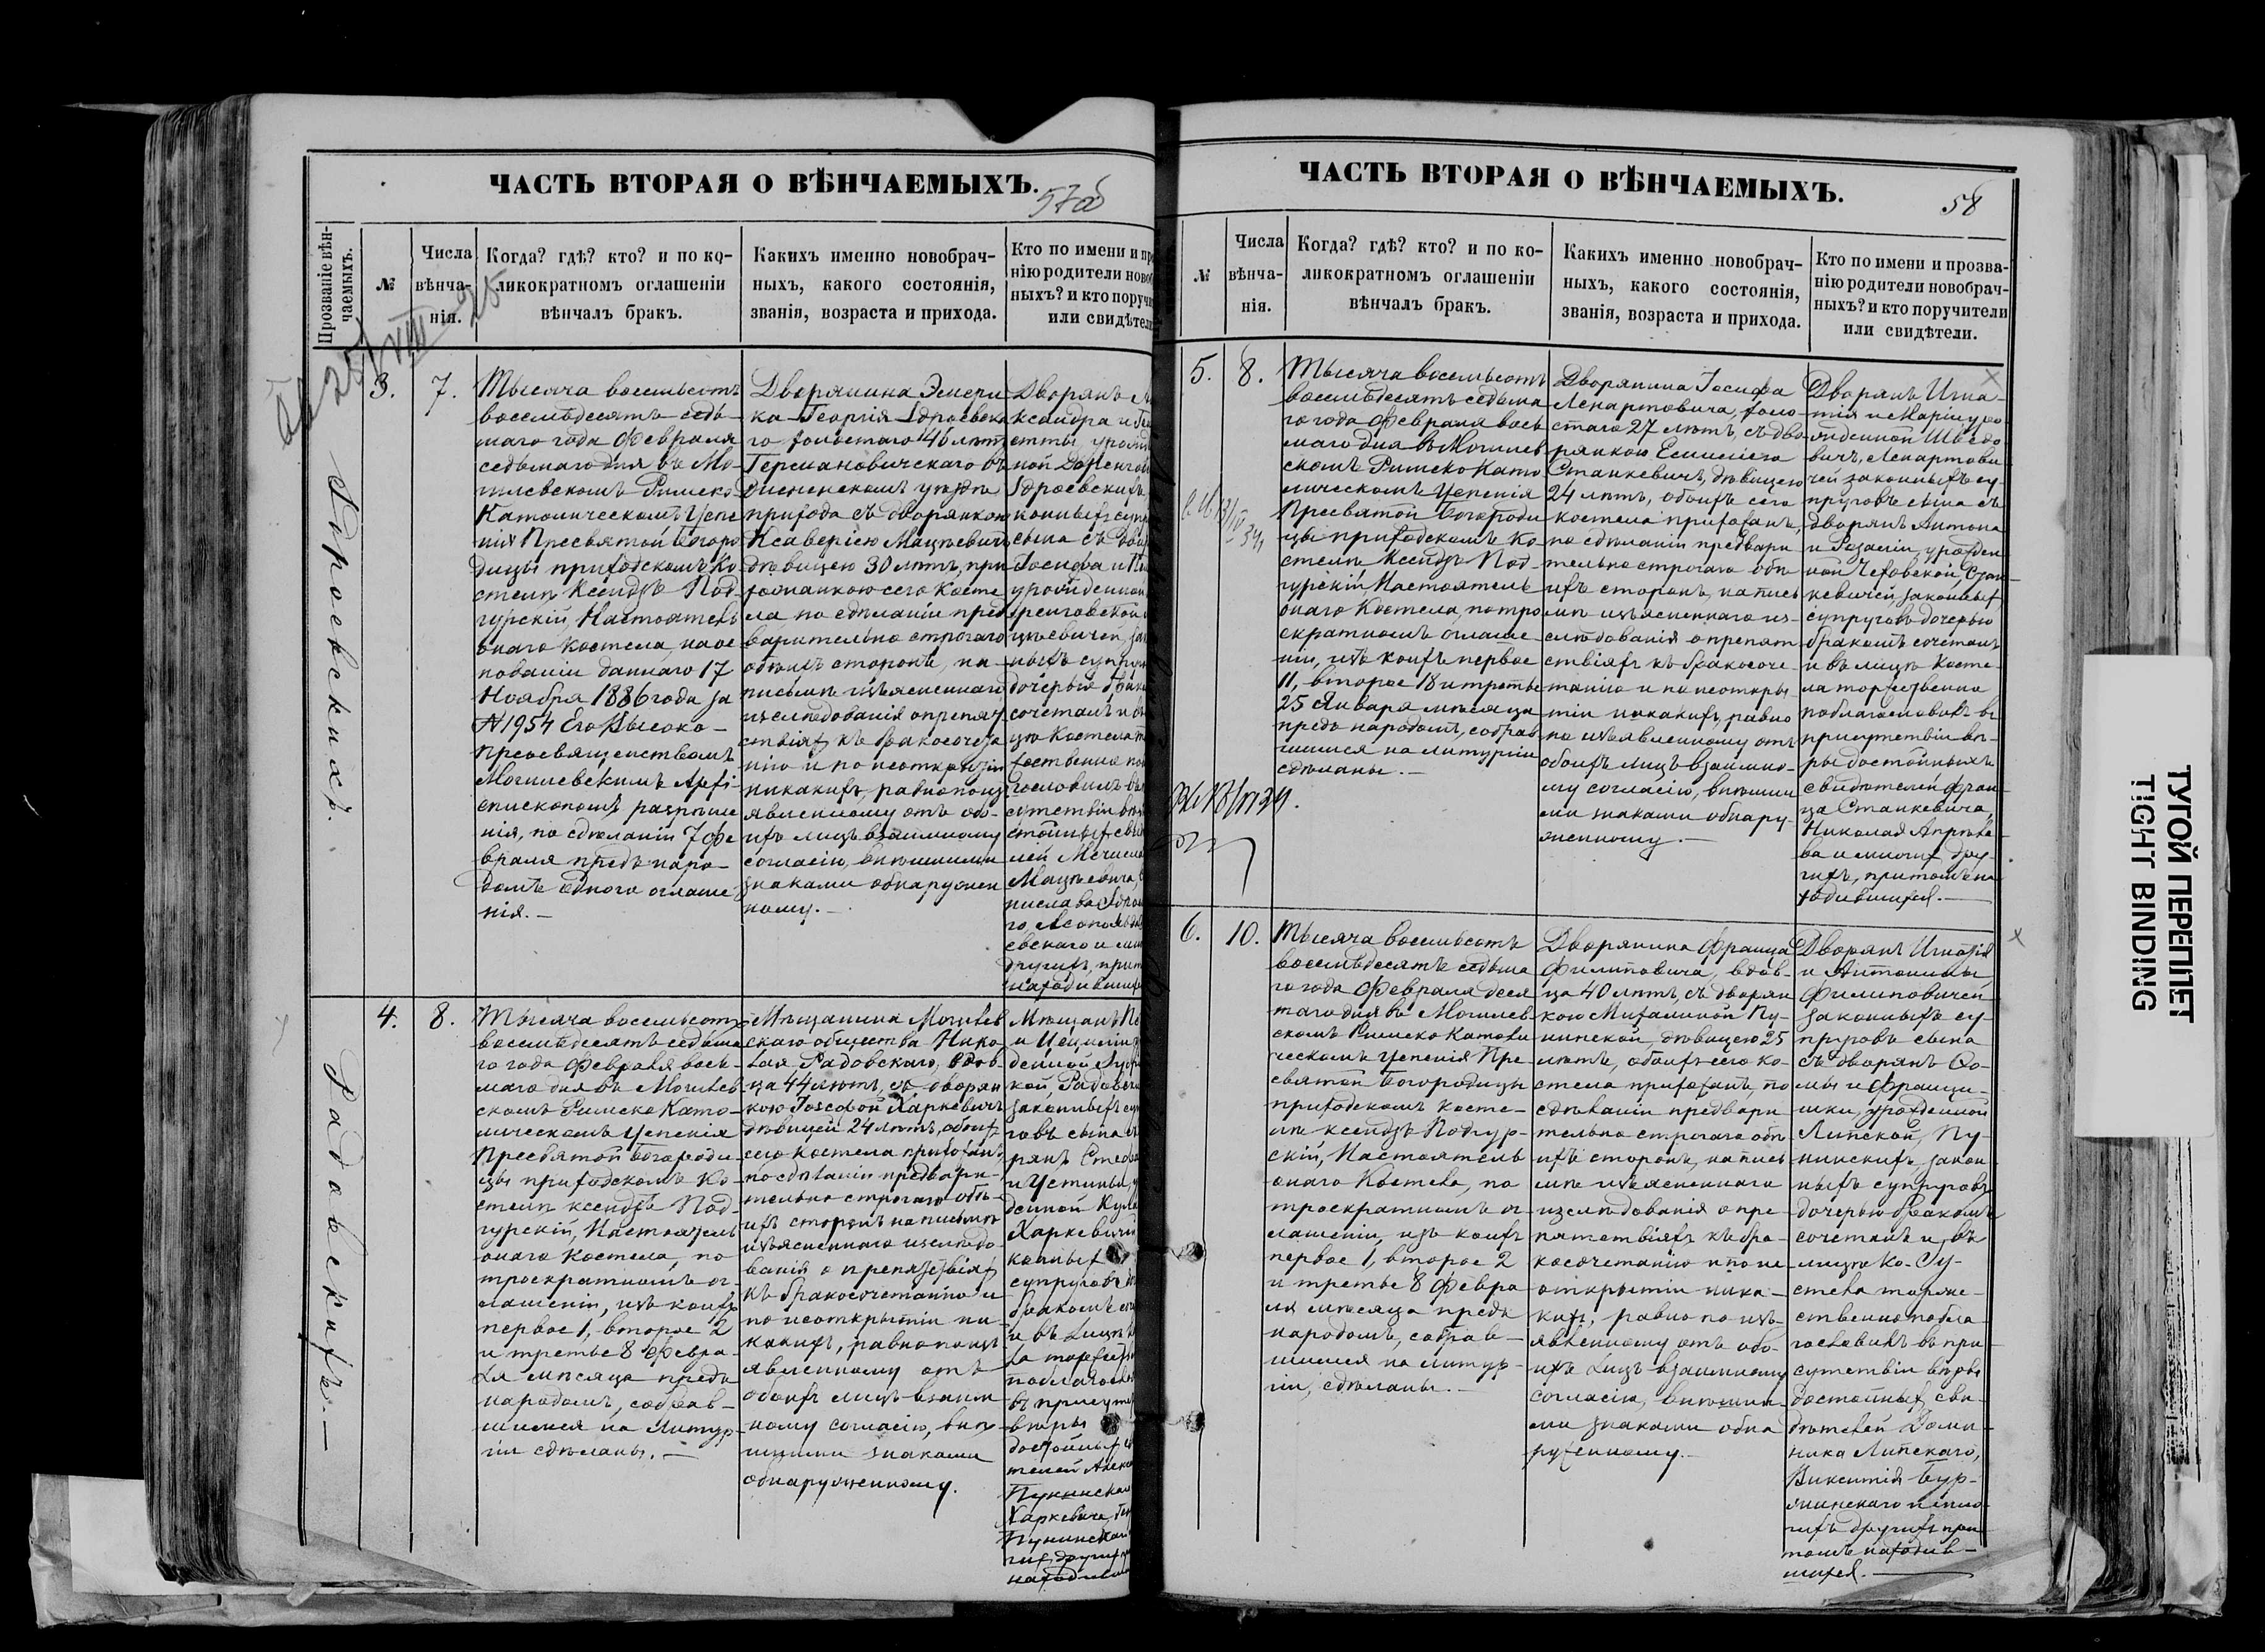 ЧАСТЬ ВТОРАЯ О ВѢНЧАЕМЫХЪ.
57об
Прозваніе вѣн-
чаемыхъ.
№
Числа
вѣнча-
нія.
Когда? гдѣ? кто? и по ко-
ликократномъ оглашеніи
вѣнчалъ бракъ.
Какихъ именно новобрач-
ныхъ, какого состоянія,
званія, возраста и прихода.
Кто по имени и про
нію родители новоб
ныхъ? и кто поручи
или свидѣтели
3.
7.
Тысяча восемьсотъ
восемьдесятъ седь-
маго года Февраля
седьмаго дня въ Мо-
гилевскомъ Римско-
Католическомъ Успе
нія Пресвятой Богоро
дицы приходскомъ Ко
стелѣ Ксендзъ Под-
гурскій, Настоятель
онаго Костела, на ос
нованіи даннаго 17
Ноября 1886 года за
№ 1954 Его Высоко-
преосвященствомъ
Могилевскимъ Архі-
епископомъ разрѣше
нія, по сдѣланіи 7 Фе
враля предъ наро-
домъ одного оглаше
нія.—
Дворянина
ка Георгія Здроевска
го холостаго 46 лѣтъ
Германовичскаго въ
Дисненскомъ уѣздѣ
прихода съ дворянкою
Ксаверіею Мацѣевичъ
дѣвицею 30 лѣтъ, при
хожанкою сего Косте
ла по сдѣланіи пред
варительно строгаго
обоихъ сторонъ, на
письмѣ изъясненнаго
изслѣдованія о препят
ствіяхъ къ бракосочета
нію и по неоткрытіи
никакихъ, равно по изъ
явленному отъ обо-
ихъ лицъ взаимному
согласію, внѣшними
знаками обнаружен
ному.—
Дворянъ
ксандра и
етты урожд
ной
Здроевскихъ
конныхъ суп
сына съ двор
Іосифа и
урожденной
цѣевичей, зак
ныхъ супруг
дочерью брак
сочеталъ и въ
цѣ Костела т
жественно по
гословилъ въ
сутствіи вѣр
стойныхъ сви
лей
Мацѣевича,
нислава Здро
го,
евскаго и мн
другихъ, при
находившихся
Здроевскихъ.
4.
8.
Тысяча восемьсотъ
восемьдесятъ седьма
го года Февраля вось-
маго дня въ Могилев
скомъ Римско Като-
лическомъ Успенія
Пресвятой Богороди-
цы приходскомъ Ко-
стелѣ ксендзъ Под-
гурскій, Настоятель
онаго Костела, по
троекратномъ ог-
лашеніи, изъ коихъ
первое 1, второе 2
и третье 8 Февра-
ля мѣсяца предъ
народомъ, собрав-
шимся на Литур-
гіи сдѣланы.—
Мѣщанина Могилев
скаго общества Нико-
лая Радовскаго, вдов-
ца 44 лѣтъ, съ дворян
кою Іозефой Харкевичъ
дѣвицей 24 лѣтъ, обоихъ
сего костела прихожанъ,
по сдѣланіи предвари-
тельно строгаго обѣ-
ихъ сторонъ на письмѣ
изъясненнаго изслѣдо-
ванія о препятствіяхъ
къ бракосочетанію и
по неоткрытіи ни-
какихъ, равно по изъ
явленному отъ
обоихъ лицъ взаим
ному согласію, внѣ
шними знаками
обнаруженному.
Мѣщанъ
и
денной
кой, Радовск
законныхъ суп
говъ сына съ
рянъ
и Устины,
денной
Харкевичей
конныхъ
супруговъ до
бракомъ соч
и въ лицѣ
ла торжест
поблагослов
въ присутст
вѣры
достойныхъ
телей
Харкевича,
гихъ, другихъ
находивш
Радовскихъ.—
ЧАСТЬ ВТОРАЯ О ВѢНЧАЕМЫХЪ.
58
№
Числа
вѣнча-
нія.
Когда? гдѣ? кто? и по ко-
ликократномъ оглашеніи
вѣнчалъ бракъ.
Какихъ именно новобрач-
ныхъ, какого состоянія,
званія, возраста и прихода.
Кто по имени и прозва-
нію родители новобрач-
ныхъ? и кто поручители
или свидѣтели.
5.
8.
Тысяча восемьсотъ
восемьдесятъ седьма
го года Февраля вось
маго дня въ Могилев
скомъ Римско Като
лическомъ Успенія
Пресвятой Богороди
цы приходскомъ Ко-
стелѣ Ксендзъ Под-
гурскій, Настоятель
онаго Костела, по тро
екратномъ оглаше-
ніи, изъ коихъ первое
11, второе 18 и третье
25 Января мѣсяца
предъ народомъ, собрав
шимся на литургіи
сдѣланы.—
Дворянина Іосифа
Ленартовича, холо-
стаго 27 лѣтъ, съ дво
рянкою
Станкевичъ, дѣвицею
24 лѣтъ, обоихъ сего
костела прихожанъ,
по сдѣланіи предвари
тельно строгаго обѣ
ихъ сторонъ, на пись
мѣ изъясненнаго из-
слѣдованія о препят
ствіяхъ къ бракосоче-
танію и по неоткры
тіи никакихъ, равно
по изъявленному отъ
обоихъ лицъ взаимно-
му согласію, внѣшни
ми знаками обнару-
женному.—
Дворянъ Игна-
тія и Маріи, уро-
жденной Шведо
вичъ, Ленартови
чей законныхъ су-
пруговъ сына съ
дворянъ Антона
и Розаліи, урожден
ной Чеховской, Стан
кевичей, законныхъ
супруговъ дочерью
бракомъ сочеталъ
и въ лицѣ Косте-
ла торжественно
поблагословилъ въ
присутствіи вѣ-
ры достойныхъ
свидѣтелей Фран-
ца Станкевича,
Николая
ва и многихъ дру-
гихъ, притомъ на
ходившихся.—
6.
10.
Тысяча восемьсотъ
восемьдесятъ седьма
го года Февраля деся
таго дня въ Могилев
скомъ Римско Католи
ческомъ Успенія Пре-
святой Богородицы
приходскомъ Косте-
лѣ ксендзъ Подгур-
скій, Настоятель
онаго Костела, по
троекратномъ ог-
лашеніи, изъ коихъ
первое 1, второе 2
и третье 8 Февра
ля мѣсяца предъ
народомъ, собрав-
шимся на литур-
гіи, сдѣланы.—
Дворянина Франца
Филиповича, вдов-
ца 40 лѣтъ, съ дворян
кою Михалиной Пу-
нинской, дѣвицею 25
лѣтъ, обоихъ сего ко-
стела прихожанъ, по
сдѣланіи предвари
тельно строгаго обѣ
ихъ сторонъ, на пись
мѣ изъясненнаго
изслѣдованія о пре-
пятствіяхъ къ бра-
косочетанію и по не
открытіи ника-
кихъ, равно по изъ-
явленному отъ обо-
ихъ лицъ взаимному
согласію, внѣшни-
ми знаками обна
руженному.—
Дворянъ Игнатія
и Антонины
Филиповичей
законныхъ су-
пруговъ сына
съ дворянъ Ѳо-
мы и Францы-
шки, урожденной
Липской, Пу-
нинскихъ, закон
ныхъ супруговъ
дочерью бракомъ
сочеталъ и въ
лицѣ Ко-
стела торже-
ственно побла
гословилъ въ при
сутствіи вѣры
достойныхъ сви-
дѣтелей Доми-
ника Липскаго,
Викентія Бур-
мнигихъ другихъ при
томъ находив-
шихся.—
ТУГОЙ ПЕРЕПЛЕТ
TIGHT BINDING